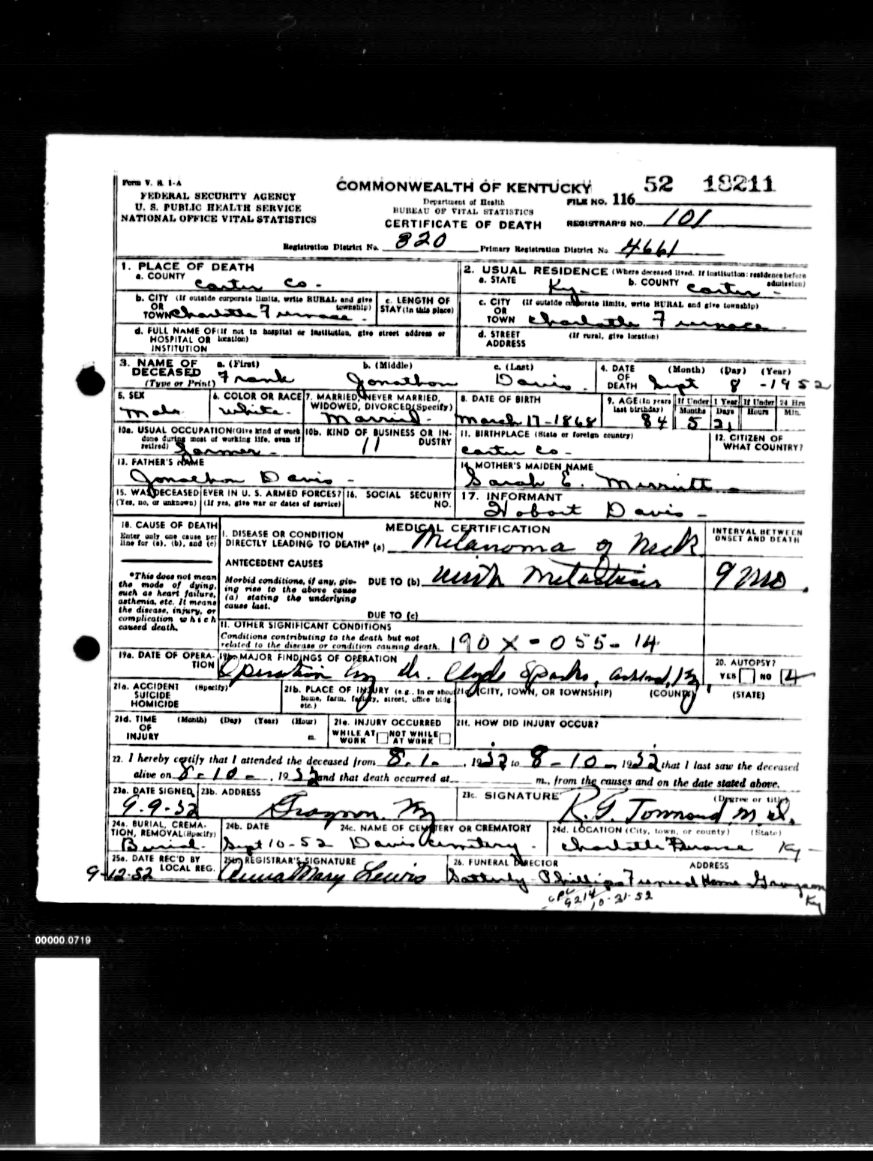 Form V. S. 1-A
FEDERAL SECURITY AGENCY
U. S. PUBLIC HEALTH SERVICE
NATIONAL OFFICE VITAL STATISTICS
COMMONWEALTH OF KENTUCKY
Department of Health
BUREAU OF VITAL STATISTICS
CERTIFICATE OF DEATH
52 18211
FILE NO. 116
REGISTRAR'S NO. 101
Registration District No. 820 Primary Registration District No 4661
1. PLACE OF DEATH
a. COUNTY Carter Co.
b. CITY (If outside corporate limits, write RURAL and give township) OR TOWN Charlotte Furnace
c. LENGTH OF STAY (in this place)
d. FULL NAME OF (If not in hospital or institution, give street address or location) HOSPITAL OR INSTITUTION
2. USUAL RESIDENCE (Where deceased lived. If institution: residence before admission)
a. STATE Ky. b. COUNTY Carter
c. CITY (If outside corporate limits, write RURAL and give township) OR TOWN Charlotte Furnace
d. STREET ADDRESS (If rural, give location)
3. NAME OF DECEASED (Type or Print)
a. (First) Frank b. (Middle) Jonathon c. (Last) Davis
4. DATE OF DEATH (Month) (Day) (Year) Sept 8 - 1952
5. SEX Male
6. COLOR OR RACE White
7. MARRIED, NEVER MARRIED, WIDOWED, DIVORCED (Specify) Married
8. DATE OF BIRTH March 17-1868
9. AGE (In years last birthday) 84 If Under 1 Year Months 5 Days 21 If Under 24 Hrs Hours Min.
10a. USUAL OCCUPATION (Give kind of work done during most of working life, even if retired) Farmer
10b. KIND OF BUSINESS OR INDUSTRY 11
11. BIRTHPLACE (State or foreign country) Carter Co.
12. CITIZEN OF WHAT COUNTRY?
13. FATHER'S NAME Jonathon Davis
14. MOTHER'S MAIDEN NAME Sarah E. Merritt
15. WAS DECEASED EVER IN U. S. ARMED FORCES? (Yes, no, or unknown) (If yes, give war or dates of service)
16. SOCIAL SECURITY NO.
17. INFORMANT Hobart Davis
18. CAUSE OF DEATH
Enter only one cause per line for (a), (b), and (c)
*This does not mean the mode of dying, such as heart failure, asthenia, etc. It means the disease, injury, or complication which caused death.
MEDICAL CERTIFICATION
INTERVAL BETWEEN ONSET AND DEATH
I. DISEASE OR CONDITION DIRECTLY LEADING TO DEATH* (a) Melanoma of Neck
ANTECEDENT CAUSES
Morbid conditions, if any, giving rise to the above cause (a) stating the underlying cause last.
DUE TO (b) with Metastasis 9 mo.
DUE TO (c)
II. OTHER SIGNIFICANT CONDITIONS
Conditions contributing to the death but not related to the disease or condition causing death. 190X-055-14
19a. DATE OF OPERATION
19b. MAJOR FINDINGS OF OPERATION Operation by Dr. Clyde Sparks, Ashland, Ky
20. AUTOPSY? YES NO 4
21a. ACCIDENT SUICIDE HOMICIDE (Specify)
21b. PLACE OF INJURY (e.g., in or about home, farm, factory, street, office bldg etc.)
21c. (CITY, TOWN, OR TOWNSHIP) (COUNTY) (STATE)
21d. TIME OF INJURY (Month) (Day) (Year) (Hour) m.
21e. INJURY OCCURRED WHILE AT WORK NOT WHILE AT WORK
21f. HOW DID INJURY OCCUR?
22. I hereby certify that I attended the deceased from 8-1-, 1952 to 8-10-, 1952 that I last saw the deceased
alive on 8-10-, 1952 and that death occurred at m., from the causes and on the date stated above.
23a. DATE SIGNED 9-9-52
23b. ADDRESS Grayson, Ky
23c. SIGNATURE (Degree or title) R. G. Townsend M.D.
24a. BURIAL, CREMATION, REMOVAL (Specify) Burial
24b. DATE Sept 10-52
24c. NAME OF CEMETERY OR CREMATORY Davis Cemetery
24d. LOCATION (City, town, or county) (State) Charlotte Furnace Ky
25a. DATE REC'D BY LOCAL REG. 9-12-52
25b. REGISTRAR'S SIGNATURE Anna Mary Lewis
26. FUNERAL DIRECTOR ADDRESS Satterly Phillips Funeral Home Grayson Ky
10-31-52
00000.0719